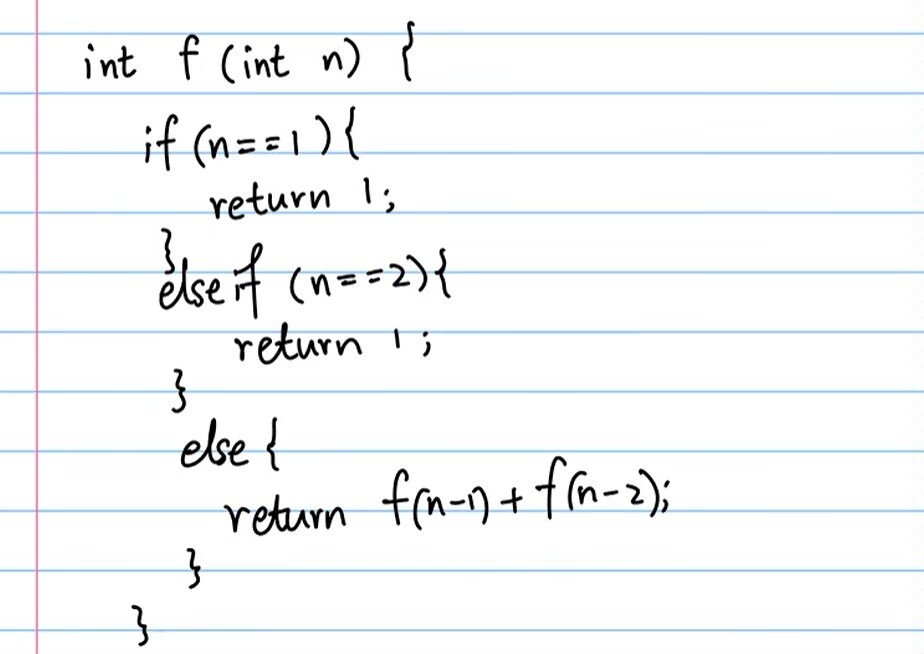 int f (int n) {
if (n==1){
return 1;
}
else if (n==2){
return 1;
}
else {
return f(n-1) + f(n-2);
}
}